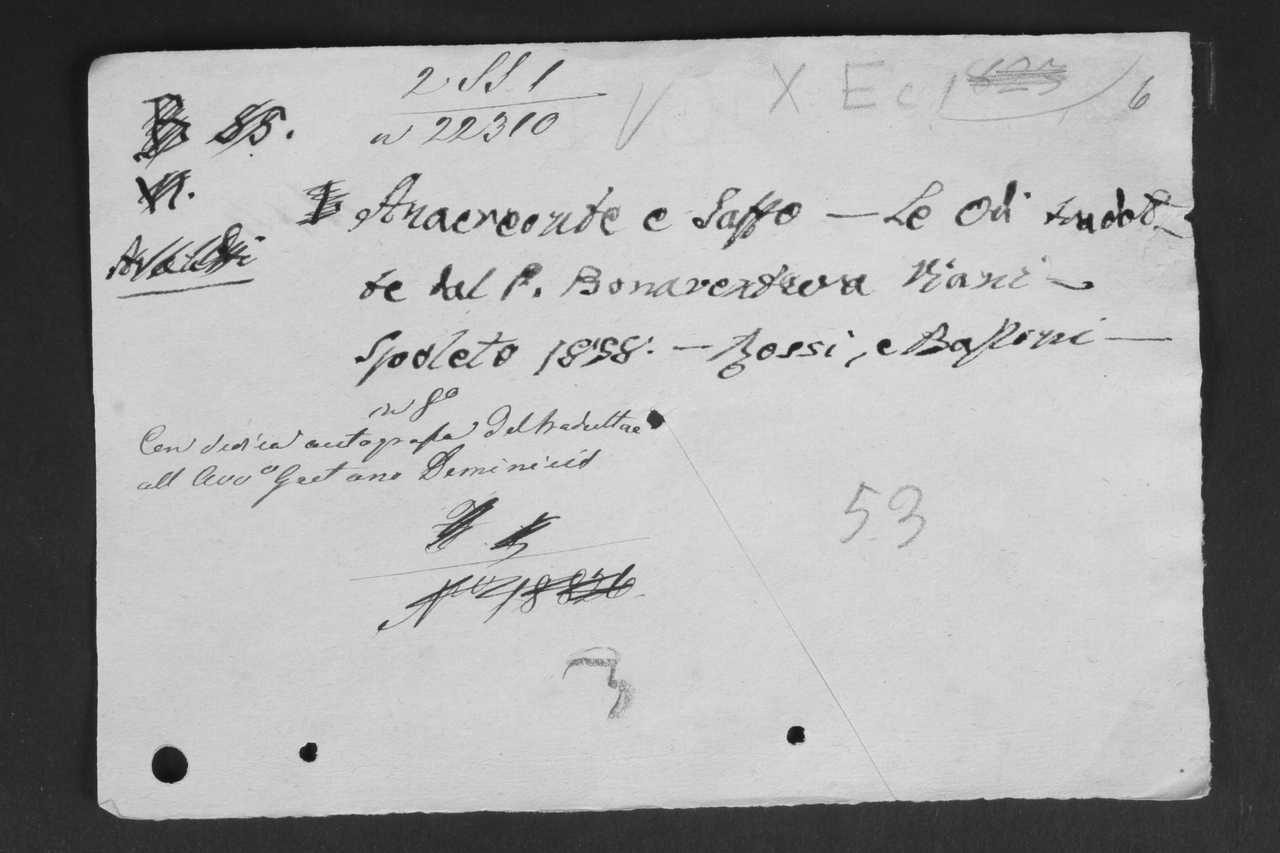 2 SS 1
n 22310
X E c 1 6
B 85.
VI.
Anacreonte e Saffo — Le Odi tradot-
te dal P. Bonaventura Viani —
Spoleto 1838. — Bossi, e Bassoni —
in 8º
Con dedica autografa del traduttore
all Avvº Gaetano Deminicis
53
3